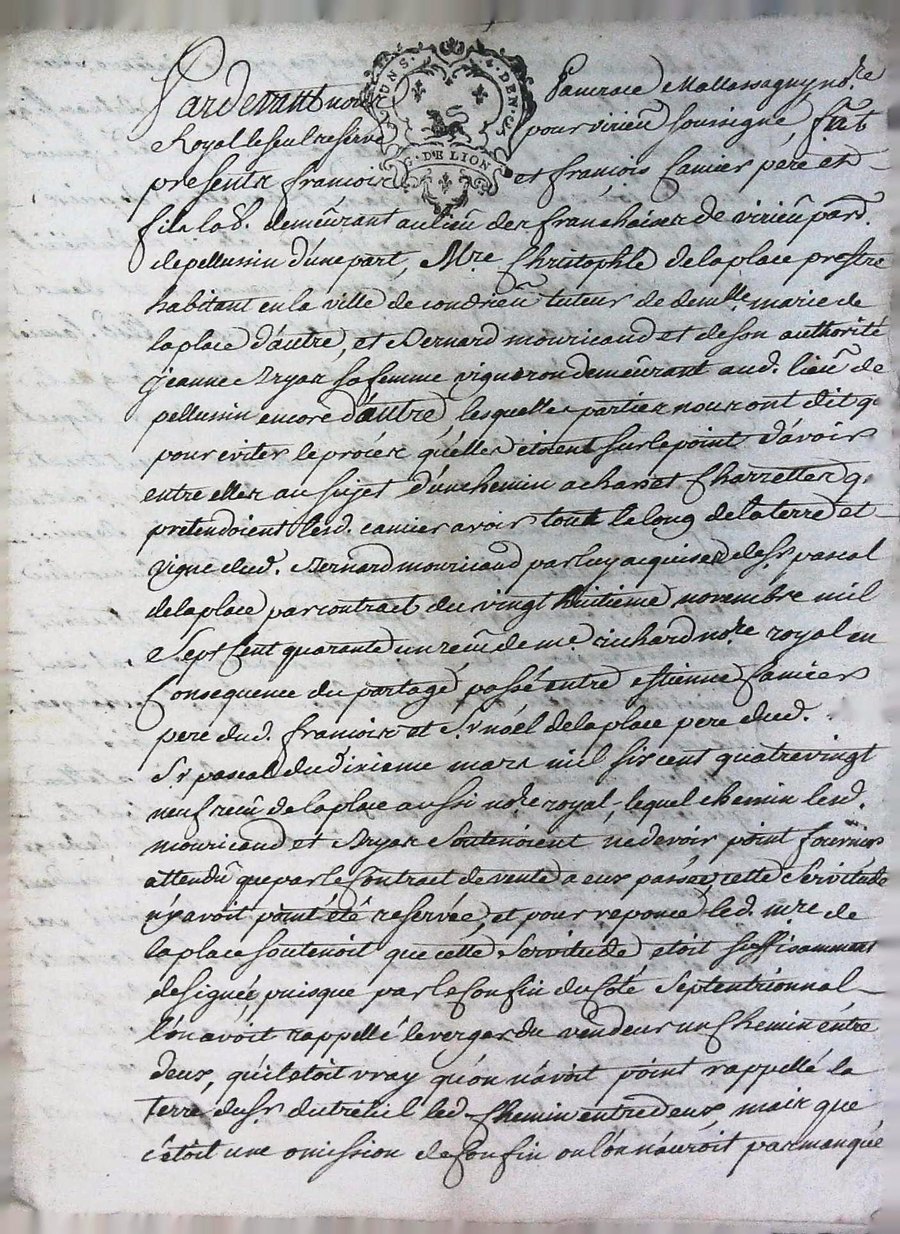 UN S. 4. DEN.
G. DE LION
Pardevant nous Pancrace Mallassagny no.re
Royal le seul reservé pour virieu soussigné fut
presents francois et francois Camier pere et
fils lab. demeurant au lieu des franchises de virieu par.
de pellussin d'une part, M.re Christophle de la place prestre
habitant en la ville de condrieu tuteur de dem.lle marie de
la place d'autre, et Bernard mouricaud et de son authorité
jeanne Bryas sa femme vigneron demeurant aud. lieu de
pellussin encore d'autre, lesquelles parties nous ont dit q.
pour eviter le procés qu'elles etoient sur le point d'avoir
entre elles au sujet d'un chemin a chars et Charrettes q.
pretendoient lesd. camier avoir tout le long de la terre et
vigne dud. Bernard mouricaud par luy acquise de Sr. pascal
de la place par contract du vingt huitieme novembre mil
sept cent quarante un receu de me. richard no.re royal en
Consequence du partage passé entre estienne Camier
pere dud. francois et Sr. noél de la place pere dud.
Sr. pascal du dixieme mars mil six cent quatre vingt
neuf receu de la place aussi no.re royal, lequel chemin lesd.
mouricaud et Bryas soutenoient ne devoir point fournir
attendu que par le Contract de vente a eux passé, cette servitude
n'y avoit point été reservée, et pour reponce led. m.re de
la place soutenoit que cette servitude etoit suffisamment
designée, puisque par le Confin du Coté septentrionnal
l'on avoit rappellé le verger du vendeur un Chemin entre
deux, qu'il etoit vray qu'on n'avoit point rappellé la
terre du Sr. dutreuil led. Chemin entre deux, mais que
c'étoit une omission de Confin ou l'on n'auroit pas manqué